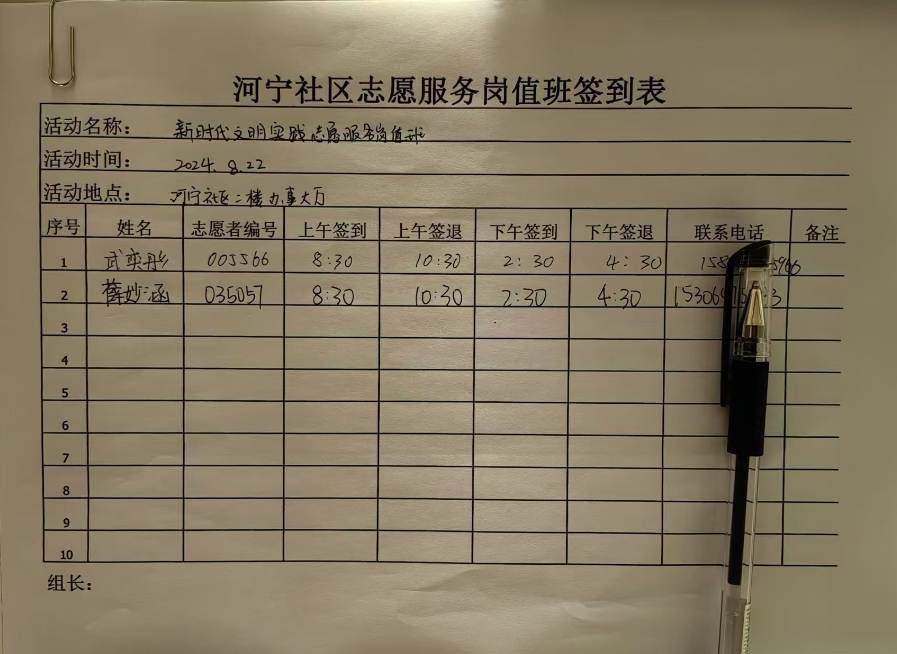 河宁社区志愿服务岗值班签到表
活动名称: 新时代文明实践志愿服务岗值班
活动时间: 2024.8.22
活动地点: 河宁社区二楼办事大厅
序号 姓名 志愿者编号 上午签到 上午签退 下午签到 下午签退 联系电话 备注
1 武奕彤 005566 8:30 10:30 2:30 4:30
2 薛妙涵 035057 8:30 10:30 2:30 4:30
3
4
5
6
7
8
9
10
组长: